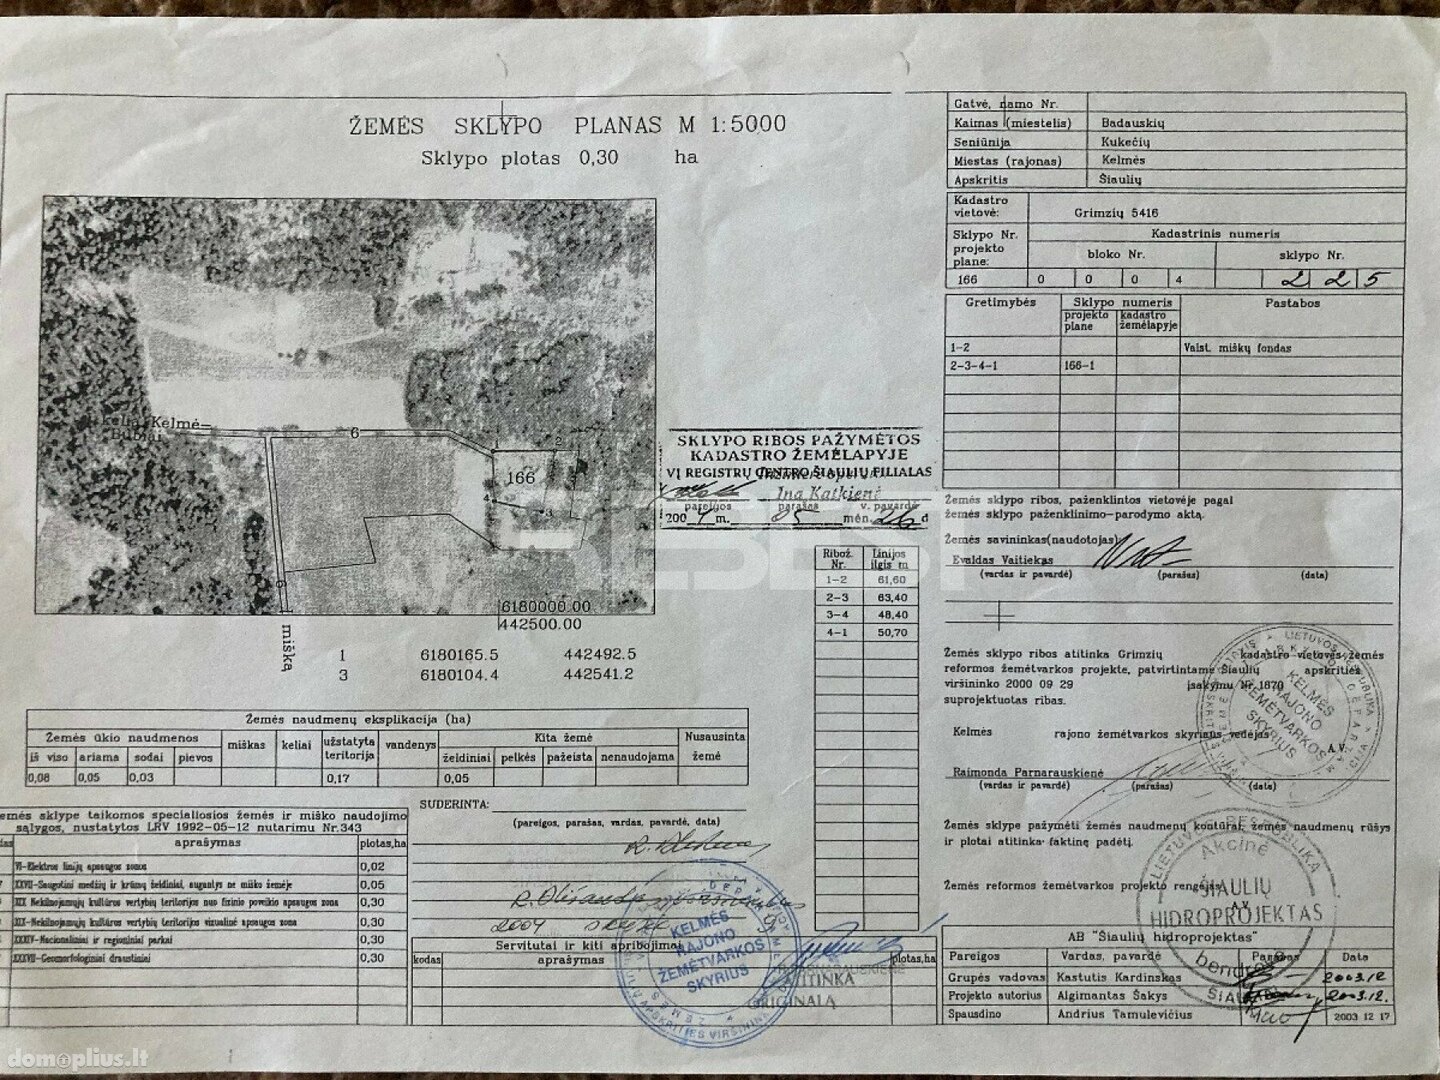 ŽEMĖS SKLYPO PLANAS M 1:5000
Sklypo plotas 0,30 ha
kelią Kelmė-
Bubiai
6
1 2
166
4 3
6
mišką
6180000.00
442500.00
1 6180165.5 442492.5
3 6180104.4 442541.2
SKLYPO RIBOS PAŽYMĖTOS
KADASTRO ŽEMĖLAPYJE
VĮ REGISTRŲ CENTRO ŠIAULIŲ FILIALAS
Ina Katkienė
pareigos parašas v. pavardė
2004 m. 05 mėn. 26 d
Ribož. Nr. Linijos ilgis m
1-2 61,60
2-3 63,40
3-4 48,40
4-1 50,70
Žemės naudmenų eksplikacija (ha)
Žemės ūkio naudmenos miškas keliai užstatyta teritorija vandenys Kita žemė Nusausinta žemė
iš viso ariama sodai pievos želdiniai pelkės pažeista nenaudojama
0,08 0,05 0,03 0,17 0,05
emės sklype taikomos specialiosios žemės ir miško naudojimo
sąlygos, nustatytos LRV 1992-05-12 nutarimu Nr.343
das aprašymas plotas,ha
VI-Elektros linijų apsaugos zonos 0,02
XXVII-Saugotini medžių ir krūmų želdiniai, augantys ne miško žemėje 0,05
XIX Nekilnojamųjų kultūros vertybių teritorijos nuo fizinio poveikio apsaugos zona 0,30
XIX-Nekilnojamųjų kultūros vertybių teritorijos vizualinė apsaugos zona 0,30
XXXIV-Nacionaliniai ir regioniniai parkai 0,30
XXXVII-Geomorfologiniai draustiniai 0,30
SUDERINTA:
(pareigos, parašas, vardas, pavardė, data)
2004
Servitutai ir kiti apribojimai
kodas aprašymas plotas,ha
KELMĖS
RAJONO
ŽEMĖTVARKOS
SKYRIUS
ATITINKA
ORIGINALĄ
Gatvė, namo Nr.
Kaimas (miestelis) Badauskių
Seniūnija Kukečių
Miestas (rajonas) Kelmės
Apskritis Šiaulių
Kadastro vietovė: Grimzių 5416
Sklypo Nr. projekto plane: Kadastrinis numeris
bloko Nr. sklypo Nr.
166 0 0 0 4 2 2 5
Gretimybės Sklypo numeris Pastabos
projekto plane kadastro žemėlapyje
1-2 Valst. miškų fondas
2-3-4-1 166-1
Žemės sklypo ribos, paženklintos vietovėje pagal
žemės sklypo paženklinimo-parodymo aktą.
Žemės savininkas(naudotojas)
Evaldas Vaitiekas
(vardas ir pavardė) (parašas) (data)
Žemės sklypo ribos atitinka Grimzių kadastro vietovės žemės
reformos žemėtvarkos projekte, patvirtintame Šiaulių apskrities
viršininko 2000 09 29 įsakymu Nr.1670
suprojektuotas ribas.
Kelmės rajono žemėtvarkos skyriaus vedėjas
A.V.
Raimonda Parnarauskienė
(vardas ir pavardė) (parašas) (data)
KELMĖS
RAJONO
ŽEMĖTVARKOS
SKYRIUS
Žemės sklype pažymėti žemės naudmenų kontūrai, žemės naudmenų rūšys
ir plotai atitinka faktinę padėtį.
Žemės reformos žemėtvarkos projekto rengėjas
A.V.
LIETUVOS RESPUBLIKA
Akcinė
ŠIAULIŲ
HIDROPROJEKTAS
bendrovė
AB "Šiaulių hidroprojektas"
Pareigos Vardas, pavardė Parašas Data
Grupės vadovas Kastutis Kardinskas 2003.12
Projekto autorius Algimantas Šakys 2003.12.
Spausdino Andrius Tamulevičius 2003 12 17
domoplius.lt